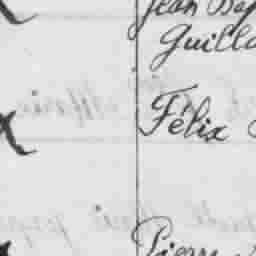 Jean Bap
Guill
Félix
Pierre